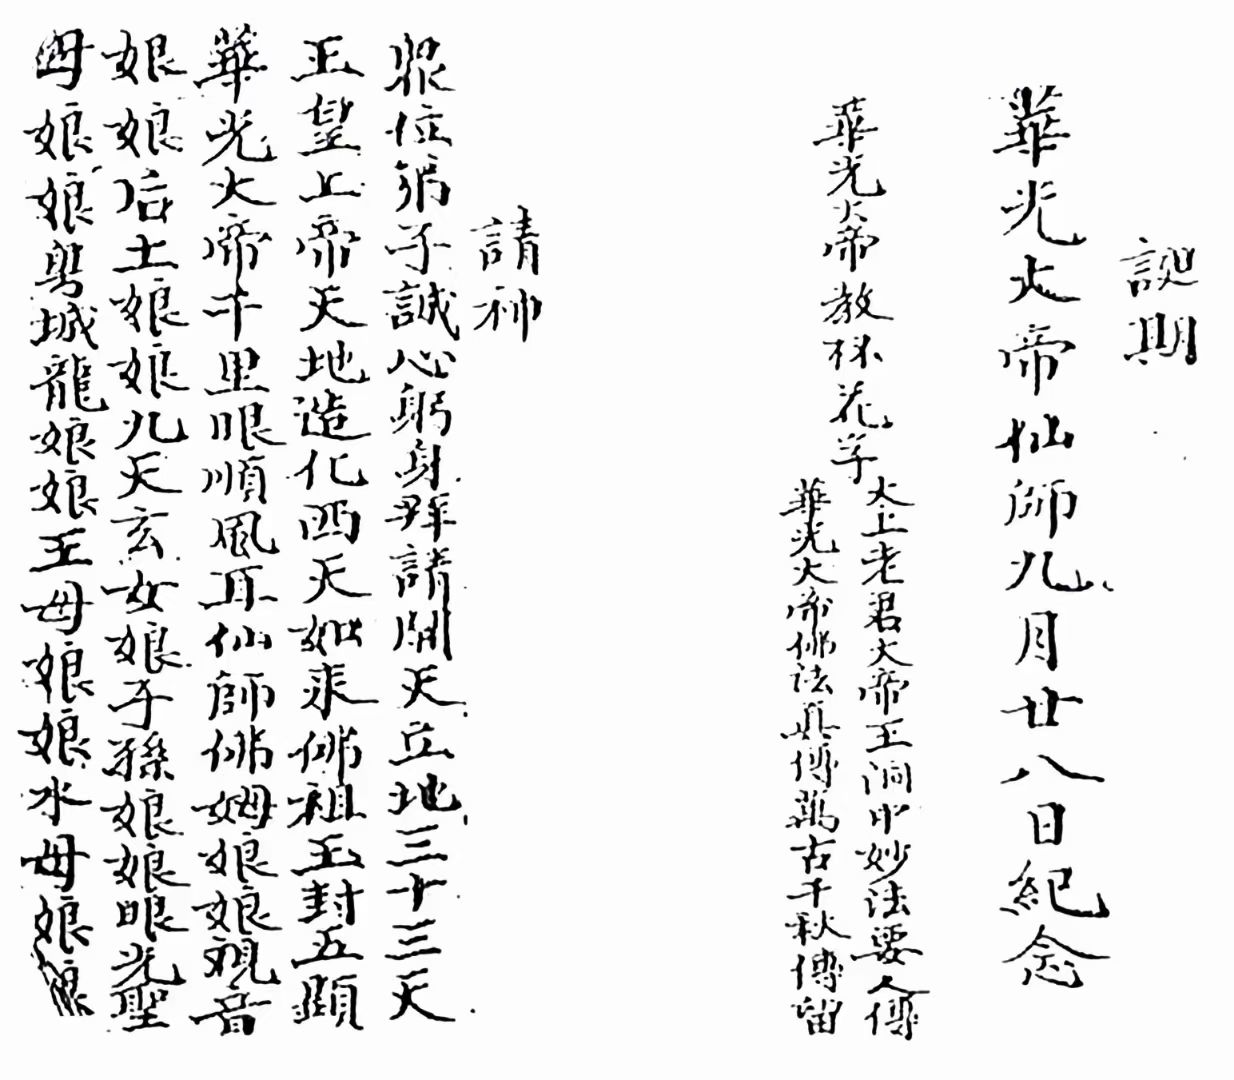 誕期
華光大帝仙師九月廿八日紀念
華光大帝教杯花字
太上老君大帝王洞中妙法要人傳
華光大帝佛法真傳萬古千秋傳留
請神
眾位弟子誠心躬身拜請開天立地三十三天
玉皇上帝天地造化西天如來佛祖玉封五顯
華光大帝千里眼順風耳仙師佛姆娘娘观音
娘娘后土娘娘九天玄女娘子孫娘娘眼光聖
母娘娘城龍娘娘王母娘娘水母娘娘